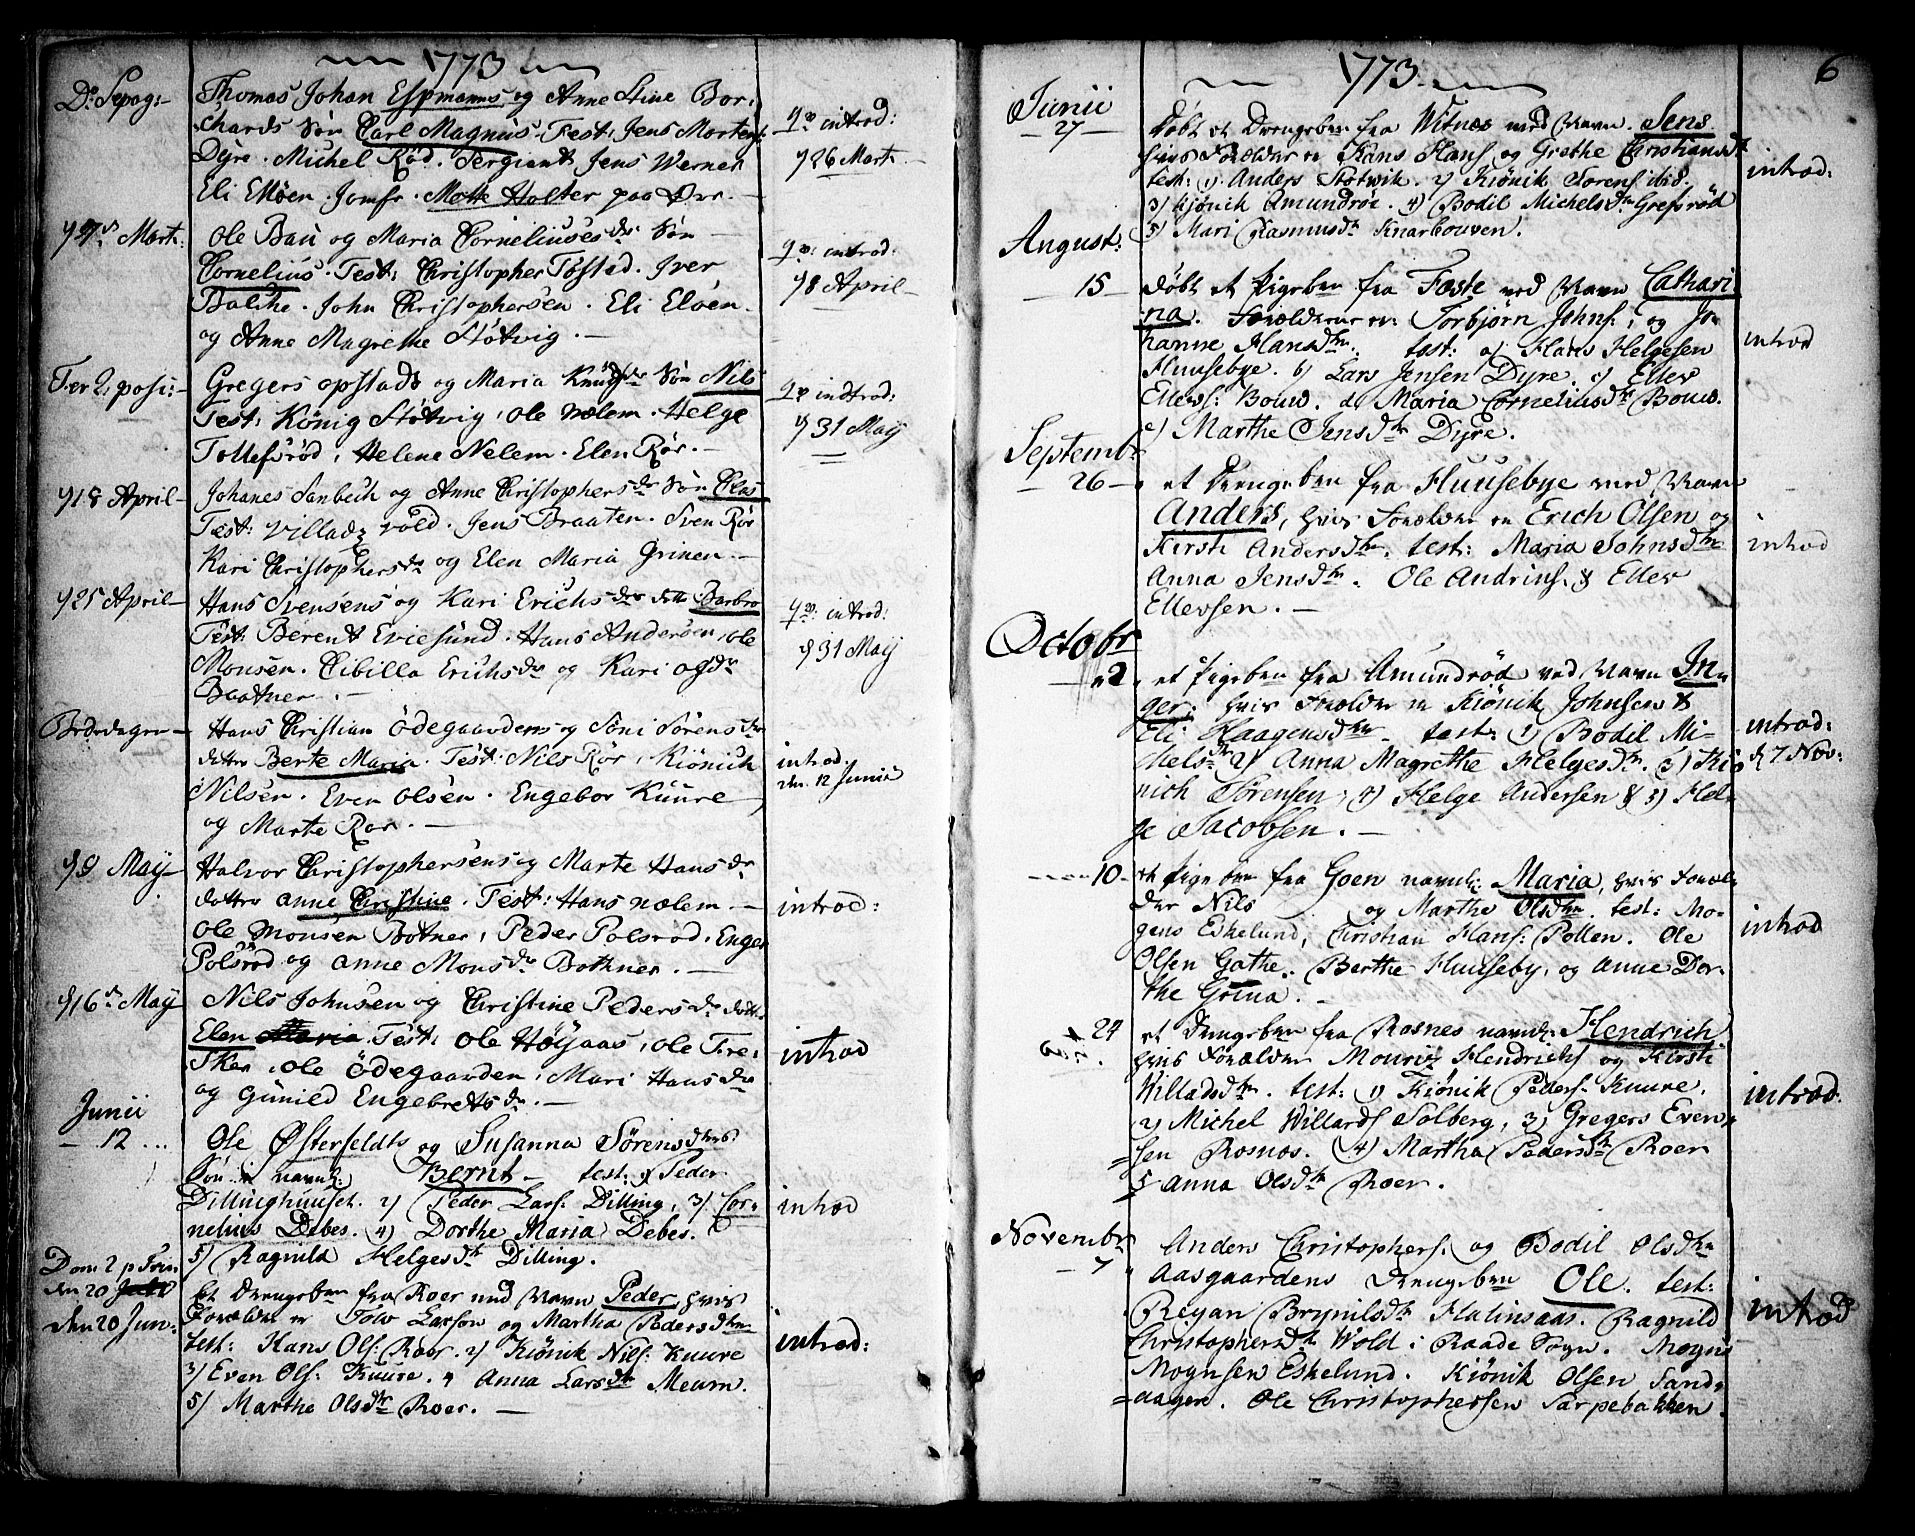 1773
Do: Sepag:
Thomas Johan Espmanns og Anne Stine Bor-
chards Søn Carl Magnus. Test: Jens Mortens:
Dyre. Michel Rød. Sergiant Jens Werner
Eli Elløen. Jomfr. Mette Holter paa Ørr.
introd:
26 Mart:
Mart:
Ole Bau og Maria Corneliuses dr Søn
Cornelius. Test: Christopher Tøstad. Iver
Balche. John Christophersen. Eli Eløen.
og Anne Magrethe Støtvig.
introd:
8 April
Fer 2. pasc:
Gregers opstads og Maria Knuds dr Søn Nils
Test: König Støtvig, ole Nælem. Helge
Tollefsrød, Helene Nelem. Elen Rör.
indtrod:
31 Maÿ
18 April
Johanes Sanbech og Anne Christophers dr Søn Clas
Test: Villadz vold. Jens Braaten. Sven Rör
Kari Christophers dr og Elen Maria Grinen.
25 April
Hans Svensens og Kari Erichs dr dotter Barbro
Test: Berent Eviesund. Hans Andersen, ole
Monsen. Cibilla Erichs dr og Kari ogs dr
Baatner.
introd:
31 Maÿ
Bededagen
Hans Christian Ödegaardens og Soni Sørens dr
dotter Berte Maria. Test: Nils Rör, Kiönich
Nilsen. Even olsen. Engebor Kuure
og Marte Ror.
introd:
den 12 Junii
9 Maÿ
Halvor Christophersens og Marte Hans dr
dotter anne Christine. Test: Hans nælem
ole monsen Botner, Peder Polsrod. Enger
Polsröd og anne Mons dr Bothner.
introd:
16 Maÿ
Nils Johnsen og Christine Peders dr dotter
Elen Maria. Test: ole Höÿaas, ole Fre-
sker, ole Ödegaarden, Mari Hans dr
og Gunild Engebrets dr.
introd
Junii
12
Ole Østerfeldts og Susanna Sørensdters
Søn navnl: Bernt test: 1) Peder
Dillinghuuset. 2) Peder Lars: Dilling, 3) Cor-
nelius Debes. 4) Dorthe Maria Debes.
5) Ragnild Helgesdtr Dilling.
introd
Dom 2 p Trin
den 20
den 20 Jun:
Et Drengebarn fra Roer med Navn Peder hvis
Forældre er Tow Larsen og Martha Pedersdtter
test: Hans Ols: Roer. 2) Kiönik Nils: Kuure
3) Even Ols: Kuure. 4 Anna Larsdtr Meum.
5) Marthe Olsdtr Roer.
introd:
1773
6
Junii
27
Døbt et Drengebn fra Witnes med Navn. Jens
hvis Forældre er Hans Hans: og Grethe Christiansdtr
test: 1) Anders Støtwik. 2) Kiönik Sorens: ibid.
3) Kjönik Amundrøe. 4) Bodil Michelsdtr Grefsrød
5) Mari Rasmusdtr Knarbouven.
introd:
August:
15
døbt et Pigebn fra Tæste ved Navn Cathari-
na. Forældrene er: Torbjørn Johns: og Jo-
hanne Hansdtr. test: a) Hans Helgesen
Huusebye. b) Lars Jensen Dyre. c) Ellev
Ellevs: Bouw. d. Maria Corneliusdtr Bouw.
e) Marthe Jensdtr Dyre.
introd
Septembr
26
et Drengebn fra Huusebye med Navn
Anders, hvis Forældre er Erich Olsen og
Kirsti Andersdtr. test: Maria Johnsdtr
Anna Jensdtr. Ole Andrins: & Ellev
Ellevsen.
introd
Octobr
2.
et Pigebn fra Amundrød ved Navn In-
ger, hvis Forældre er Kiönik Johnsen &
Eli Haagensdtr. test: 1) Bodil Mi-
chelsdtr 2) Anna Magrethe Helgesdtr. 3) Kiö-
nich Sörensen, 4) Helge Andersen & 5) Hel-
ge Jacobsen.
introd:
d. 7 Nov:
10
et Pigebn fra Goen navnl: Maria, hvis Foræl-
dre Nils og Marthe Olsdtr. test: Mo-
gens Eskelund, Christian Hans: Pollen. Ole
Olsen Gathe. Berthe Huuseby, og Anne Dor-
the Grina.
introd
24
et Drengebn fra Rosnes navnl: Hendrich
hvis Forældre Mouriz Hendrichs og Kirsti
Willadsdtr. test: 1) Kiönik Peders: Kuure.
2) Michel Willards Solberg, 3) Gregers Even-
sen Rosnos. 4) Martha Pedersdtr Roer
5 Anna Olsdtr Roer.
introd.
Novembr
7
Anders Christophers: og Bodil Olsdtr
Aasgaardens Drengebn Ole. test:
Reyan Brynilsdtr Halinsaas. Ragnild
Christophersdtr Wold i Raade Sogn. Mogns
Mognsen Eskelund. Kiönik Olsen Sand-
aagen. Ole Christophersen Sarpebakken.
introd